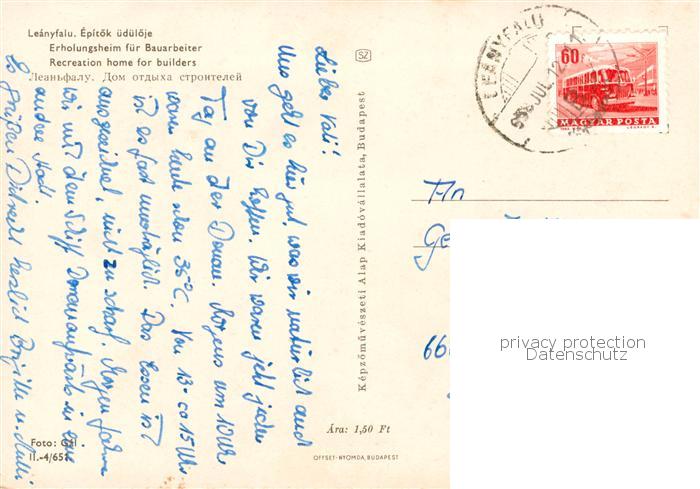 Leányfalu. Építők üdülője
Erholungsheim für Bauarbeiter
Recreation home for builders
Леаньфалу. Дом отдыха строителей
SZ
LEÁNYFALU
JUL. 12
60f
MAGYAR POSTA
Lieber Vati!
Uns geht es hier gut, was wir natürlich auch
von Dir hoffen. Wir waren jetzt jeden
Tag an der Donau. Morgens um 10 Uhr
waren heute schon 35°C. Von 13 - ca 15 Uhr
ist es fast unerträglich. Das Essen ist
ausgezeichnet, nicht zu scharf. Morgen fahren
wir mit dem Schiff Donauaufwärts in eine
andere Stadt.
Es grüßen Dich recht herzlich Brigitte u. Mutti
Képzőművészeti Alap Kiadóvállalata, Budapest
An
Ge
66
privacy protection
Datenschutz
Foto: Gál
II.-4/651
Ára: 1,50 Ft
OFFSET-NYOMDA, BUDAPEST